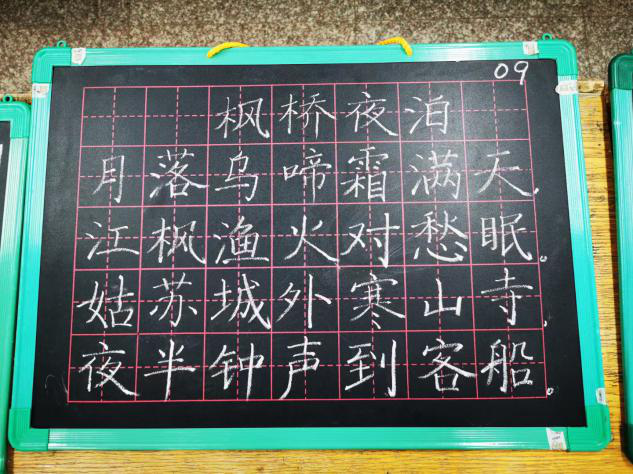 09
枫桥夜泊
月落乌啼霜满天,
江枫渔火对愁眠。
姑苏城外寒山寺,
夜半钟声到客船。